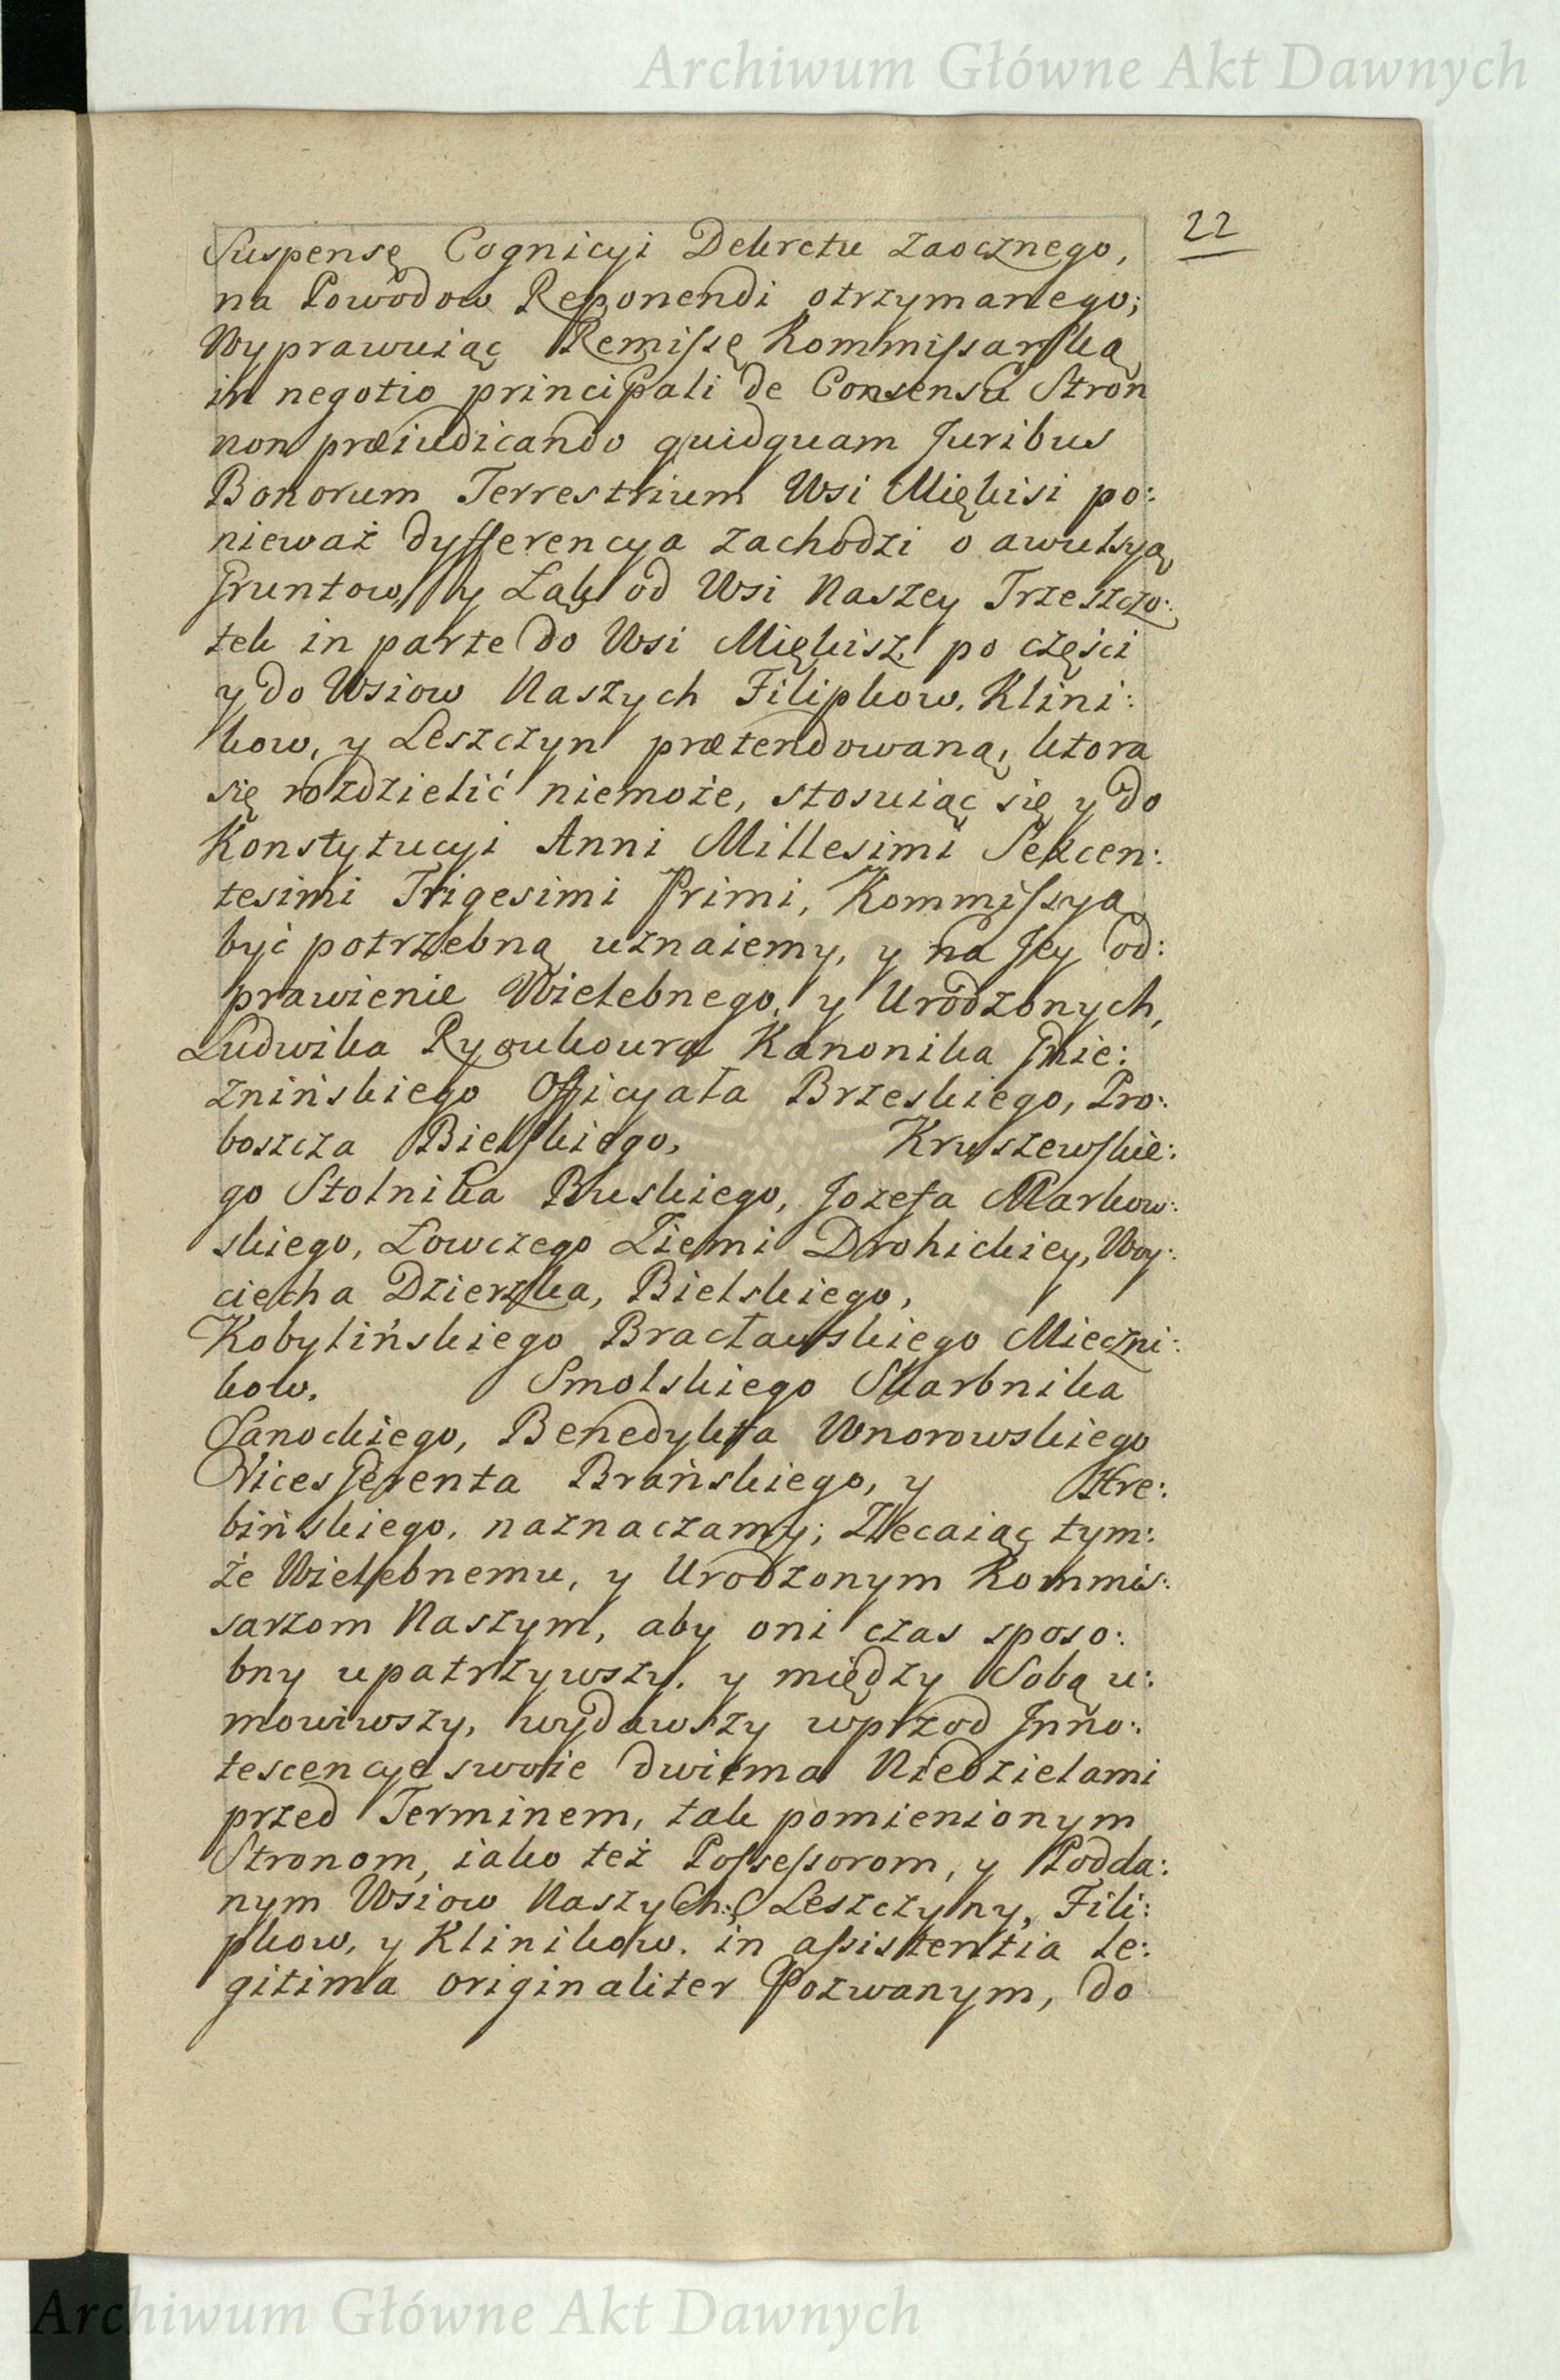 Archiwum Główne Akt Dawnych
22
Suspensę Cognicyi Dekretu zaocznego,
na Powodow Reponendi otrzymanego;
Wyprawuiąc Remissę Kommissarską
in negotio principali de Consensu Stron
non præiudicando quidquam Juribus
Bonorum Terrestrium Wsi Miękisi po:
nieważ dyfferencya zachodzi o awulsyą
Gruntow, y Łąk od Wsi Naszey Trzeszczo:
tek in parte do Wsi Miękisz, po części
y do Wsiow Naszych Filipkow, Klini:
kow, y Leszczyn prætendowaną, ktora
się rozdzielić niemoże, stosuiąc się y do
Konstytucyi Anni Millesimi Sexcen:
tesimi Trigesimi Primi, Kommissyą
być potrzebną uznaiemy, y na Jey od:
prawienie Wielebnego, y Urodzonych,
Ludwika Kanonika Gnie:
znińskiego Officyała Brzeskiego, Pro:
boszcza Bielskiego, Kruszewskie:
go Stolnika Buskiego, Jozefa Markow:
skiego, Łowczego Ziemi Drohickiey, Woy:
ciecha Dzierzka, Bielskiego,
Kobylińskiego Bracławskiego Mieczni:
kow, Smolskiego Skarbnika
Sanockiego, Benedykta Wnorowskiego
Vices Gerenta Brańskiego, y Hre:
bińskiego, naznaczamy; Zlecaiąc tym:
że Wielebnemu, y Urodzonym Kommis:
sarzom Naszym, aby oni czas sposo:
bny upatrzywszy, y między Sobą u:
mowiwszy, wydawszy wprzod Jnno:
tescencye swoie dwiema Niedzielami
przed Terminem, tak pomienionym
Stronom, iako też Possessorom, y Podda:
nym Wsiow Naszych: Leszczyny, Fili:
pkow, y Klinikow, in assistentia le:
gitima originaliter Pozwanym, do
Archiwum Główne Akt Dawnych